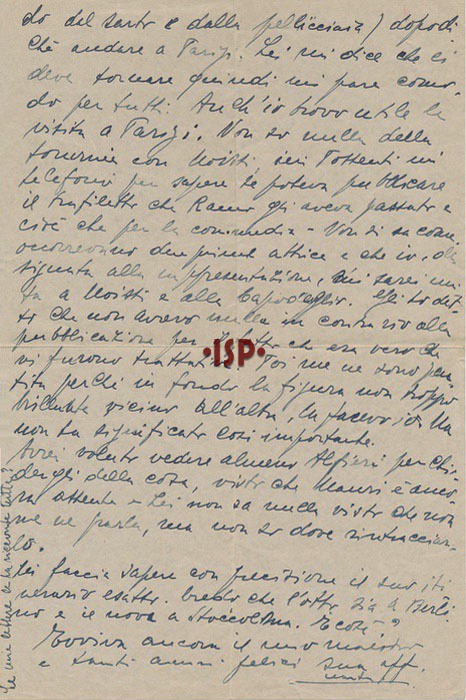 do del sarto e dalla pellicciaia) dopodi
chè andare a Parigi. Lei mi dice che ci
deve tornare quindi mi pare como-
do per tutti. Anch'io trovo utile la
visita a Parigi. Non so nulla della
tournée con Moissi. Ieri Possenti mi
telefonò per sapere se poteva pubblicare
il trafiletto che Ramo gli aveva passato e
cioè che per la commedia - Non si sa come
occorrevano due prime attrice e che io,
signata alla rappresentazione, mi sarei uni
ta a Moissi e alla Capodaglio. Gli ho det-
to che non avevo nulla in contrario alla
pubblicazione per il fatto che era vero che
vi furono trattative. Poi me ne sono pen-
tita perchè in fondo la figura non troppo
brillante vicino all'altra, la facevo io. Ma
non ha significato così importante.
Avrei voluto vedere almeno Alfieri per chie-
dergli della cosa, visto che Mauri è anco-
ra assente e Lei non sa nulla visto che non
me ne parla, ma non so dove rintracciar-
lo.
Lei faccia sapere con precisione il suo iti
nerario esatto. Credo che l'otto sia a Berli
no e il nove a Stoccolma. E così?
Evviva ancora il mio maestro
e tanti auguri felici sua aff.
Marta
Le mie lettere le ha ricevute tutte?
•ISP•